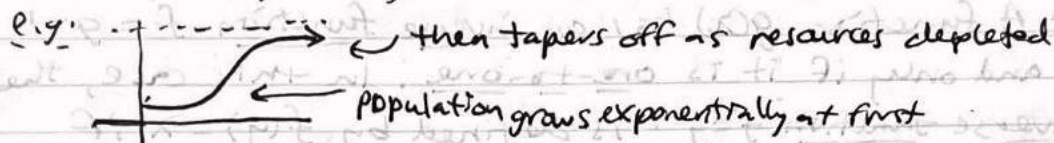 e.g. then tapers off as resources depleted
population grows exponentially at first